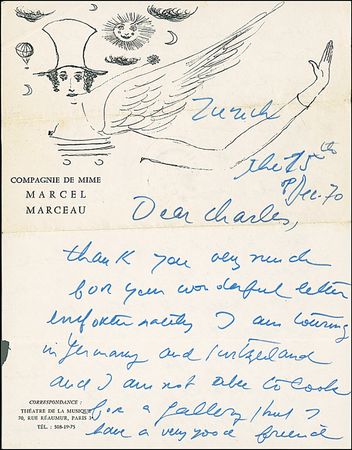 Zurich
the 15th
Dec. 70
COMPAGNIE DE MIME
MARCEL
MARCEAU
Dear Charles,
thank you very much
for your wonderful letter
unfortunately I am touring
in Germany and Switzerland
and I am not able to look
for a gallery, but I
have a very good friend
CORRESPONDANCE :
THÉATRE DE LA MUSIQUE
70, RUE RÉAUMUR, PARIS
TÉL. : 508-19-75